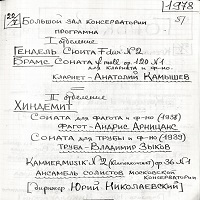 1978
20/I Большой зал консерватории 57
программа
I отделение
Гендель Сюита F-dur №2
Брамс Соната f moll op. 120 №1
для кларнета и ф-но
кларнет - Анатолий Камышев
II отделение
Хиндемит
Соната для фагота и ф-но (1938)
Фагот - Андрис Арницанс
Соната для трубы и ф-но (1939)
Труба - Владимир Зыков
Kammermusik №2 (Klavierkonzert) op 36 №1
Ансамбль солистов московской
консерватории
[дирижер Юрий Николаевский]